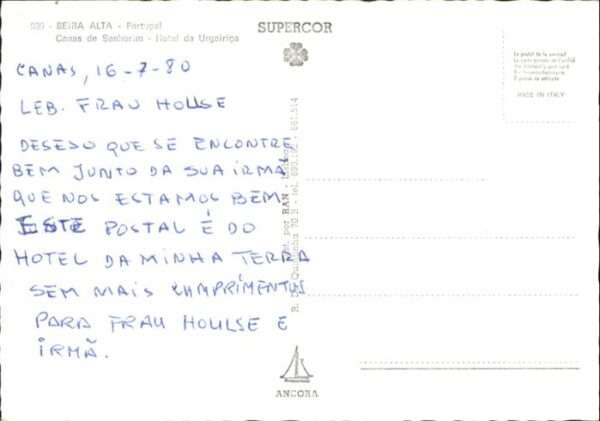 039 - BEIRA ALTA - Portugal
Canas de Senhorim - Hotel da Urgeiriça
SUPERCOR
MADE IN ITALY
CANAS, 16-7-80
LEB. FRAU HOLLSE
DESEJO QUE SE ENCONTRE
BEM JUNTO DA SUA IRMÃ
QUE NOS ESTAMOS BEM
ESTE POSTAL É DO
HOTEL DA MINHA TERRA
SEM MAIS CUMPRIMENTOS
PARA FRAU HOULSE E
IRMÃ.
por HAN
ANCORA